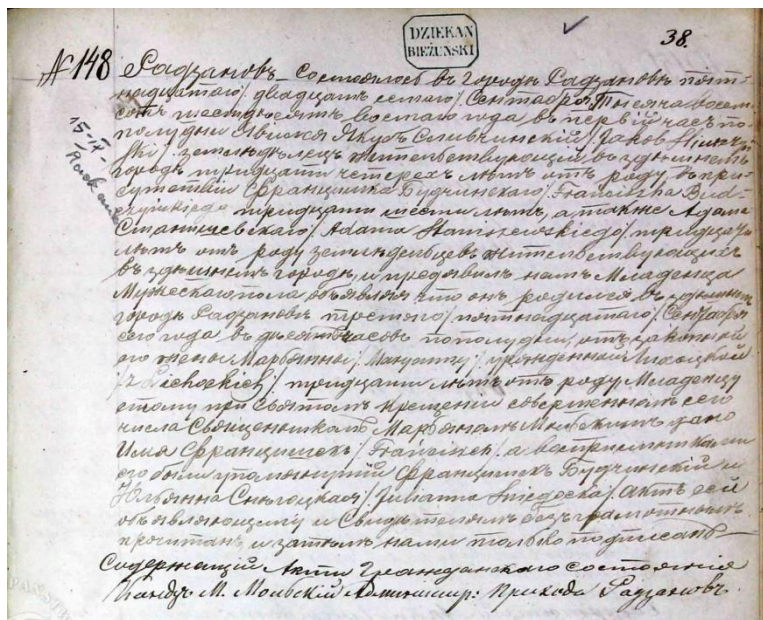 DZIEKAN
BIEŻUŃSKI
38.
№ 148
15-IX-
Радзановъ. Состоялось въ городѣ Радзановѣ пят-
надцатаго / двадцать / Сентября Тысяча восемь-
сотъ шестьдесятъ восьмаго года въ первый часъ по-
полудни Явился Якубъ Сливчинскій / Jakób
ski / земледѣлецъ жительствующій въ здѣшнемъ
городѣ тридцати четырехъ лѣтъ отъ роду, въ при-
сутствіи Францишка Будчинскаго / Franciszka Bud-
czyńskiego тридцати шести лѣтъ, а также Адама
Станишевскаго / Adama Staniszewskiego / тридцати
лѣтъ отъ роду земледѣльцевъ жительствующихъ
въ здѣшнемъ городѣ, и предъявилъ намъ Младенца
Мужескаго пола объявляя что онъ родился въ здѣшнемъ
городѣ Радзановѣ третьяго / пятнадцатаго / Сентября
сего года въ десять часовъ пополудни, отъ законной
его жены Марьянны / Maryanny / урожденной Лихоцкой
/ z Lichockich / тридцати лѣтъ отъ роду. Младенцу
етому при Святомъ Крещеніи совершенномъ сего
числа Священникомъ Марьяномъ дано
Имя Францишекъ / Franciszek / а воспріемниками
его были упомянутый Францишекъ Будчинскій и
Юльянна Снѣгоцкая / Julianna Śniegocka / Актъ сей
объявляющему и Свидѣтелямъ безъграмотнымъ
прочитанъ, и затѣмъ нами только подписанъ
Содержащій Акты Гражданскаго состоянія
Ксендзъ М. Админист: Прихода Радзановъ.